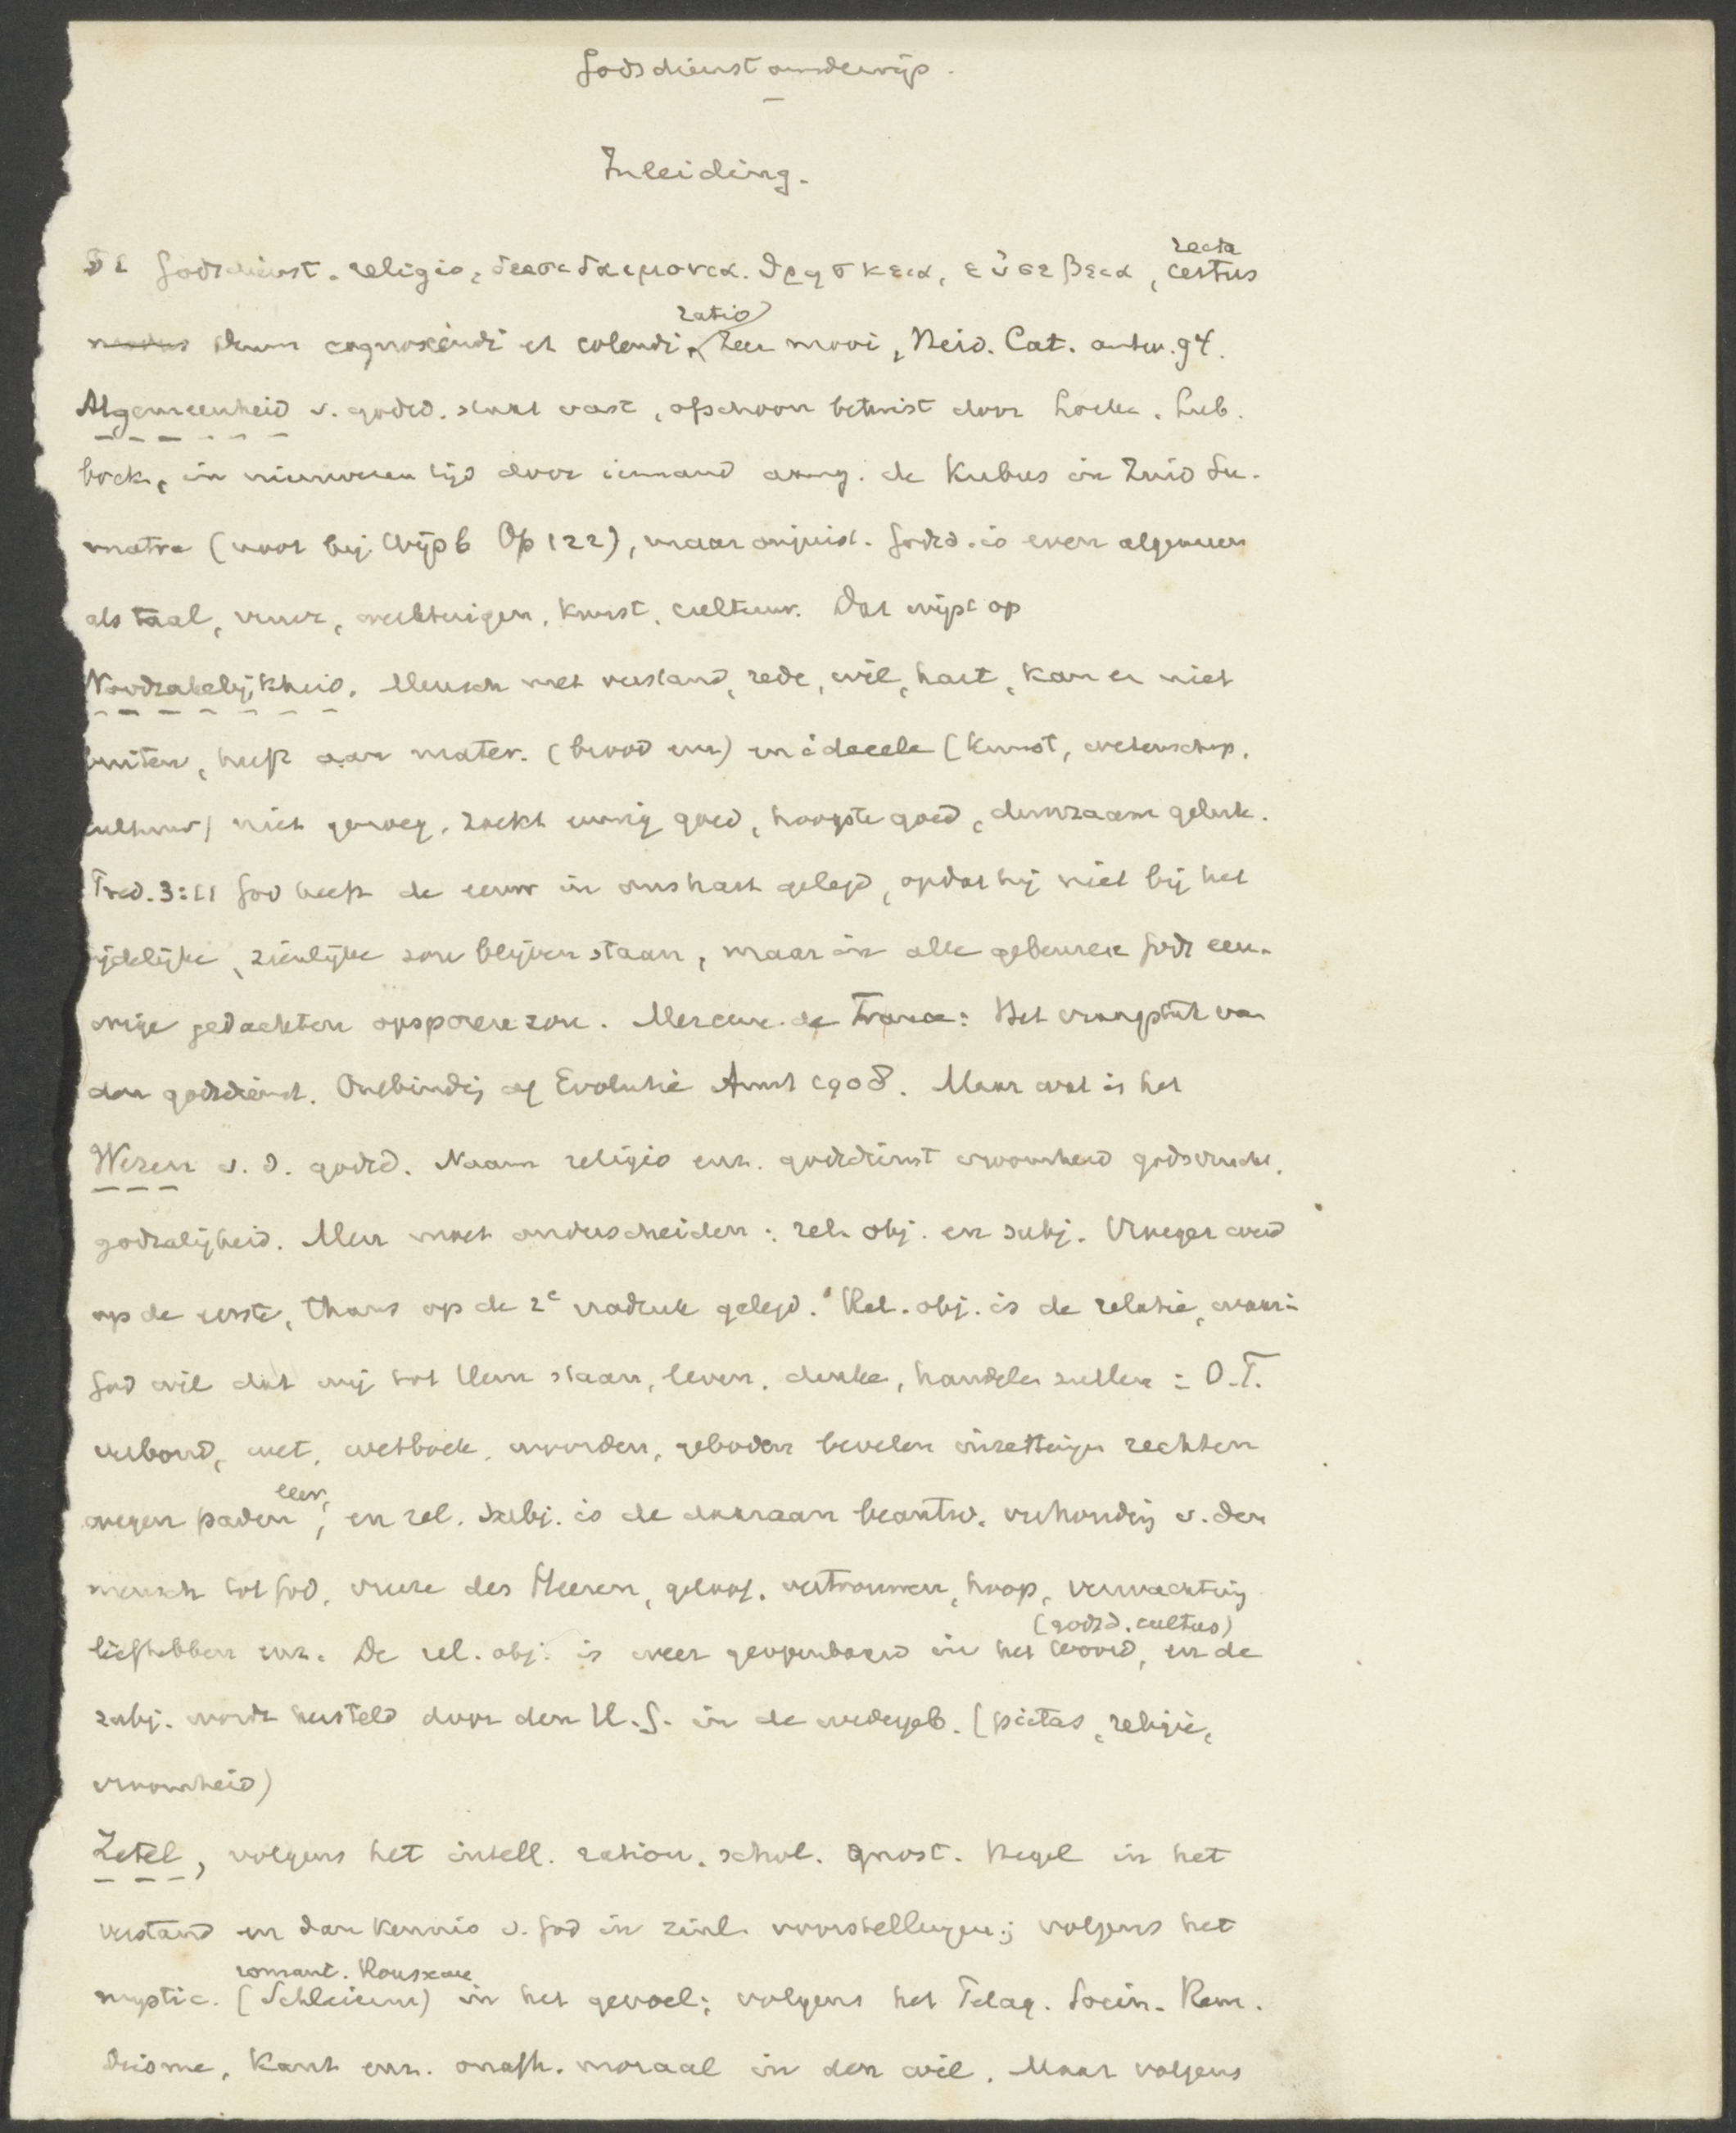 Godsdienstonderwijs.
Inleiding.
De Godsdienst. religio, δεισιδαιμονια. θρησκεια, εὐσεβεια, certus
recta
modus Deum cognoscendi et colendi, Zeer mooi, Heid. Cat. antw. 94.
ratio
Algemeenheid v. godsd. staat vast, ofschoon betwist door Locke. Lub.
bock, in nieuweren tijd door iemand aang. de Kubus in Zuid Su-
matra (voor bij Wijsb Op 122), maar onjuist. Godsd. is even algemeen
als taal, vuur, werktuigen, kunst, cultuur. Dat wijst op
Noodzakelijkheid. Mensch met verstand, rede, wil, hart, kan er niet
buiten, heeft aan mater. (brood enz) en ideeele (kunst, wetenschap,
cultuur) niet genoeg, zoekt eeuwig goed, hoogste goed, duurzaam geluk.
Pred. 3:11 God heeft de eeuw in ons hart gelegd, opdat hij niet bij het
tijdelijke, zienlijke zou blijven staan, maar in alle gebeuren Gods eeu-
wige gedachten opsporen zou. Mercure de France: Het vraagstuk van
den godsdienst. Ontbinding of Evolutie Amst 1908. Maar wat is het
Wezen v. d. godsd. Naam religio enz. godsdienst vroomheid godsvrucht,
godzaligheid. Men moet onderscheiden: rel. obj. en subj. Vroeger werd
op de eerste, thans op de 2e nadruk gelegd. Rel. obj. is de relatie, waarin
God wil dat wij tot Hem staan, leven, denken, handelen zullen = O.T.
verbond, wet, wetboek, woorden, geboden bevelen inzettingen rechten
wegen paden, en rel. subj. is de daaraan beantw. verhouding v. den
leer,
mensch tot God, vreze des Heeren, geloof, vertrouwen, hoop, verwachting
liefhebben enz. De rel. obj. is weer geopenbaard in het Woord, en de
(godsd. cultus)
subj. wordt hersteld door den H.G. in de wedergeb. (pietas, religie,
vroomheid)
Zetel, volgens het intell. ration. schol. Gnost. Hegel in het
verstand en dan kennis v. God in zinl. voorstellingen; volgens het
mystic. (Schleierm) in het gevoel; volgens het Pelag. Socin. Rem.
romant. Rousseau
Deisme, Kant enz. onafh. moraal in den wil. Maar volgens